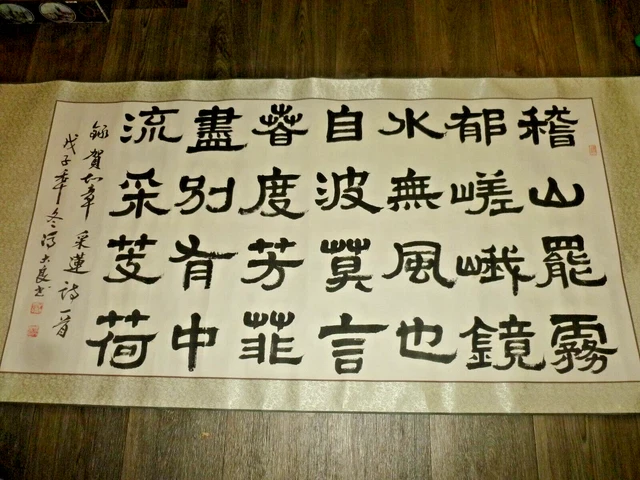 稽山罷霧
郁嵯峨鏡
水無風也
自波莫言
春度芳菲
盡別有中
流采芰荷
錄賀知章采蓮詩一首
戊子年冬